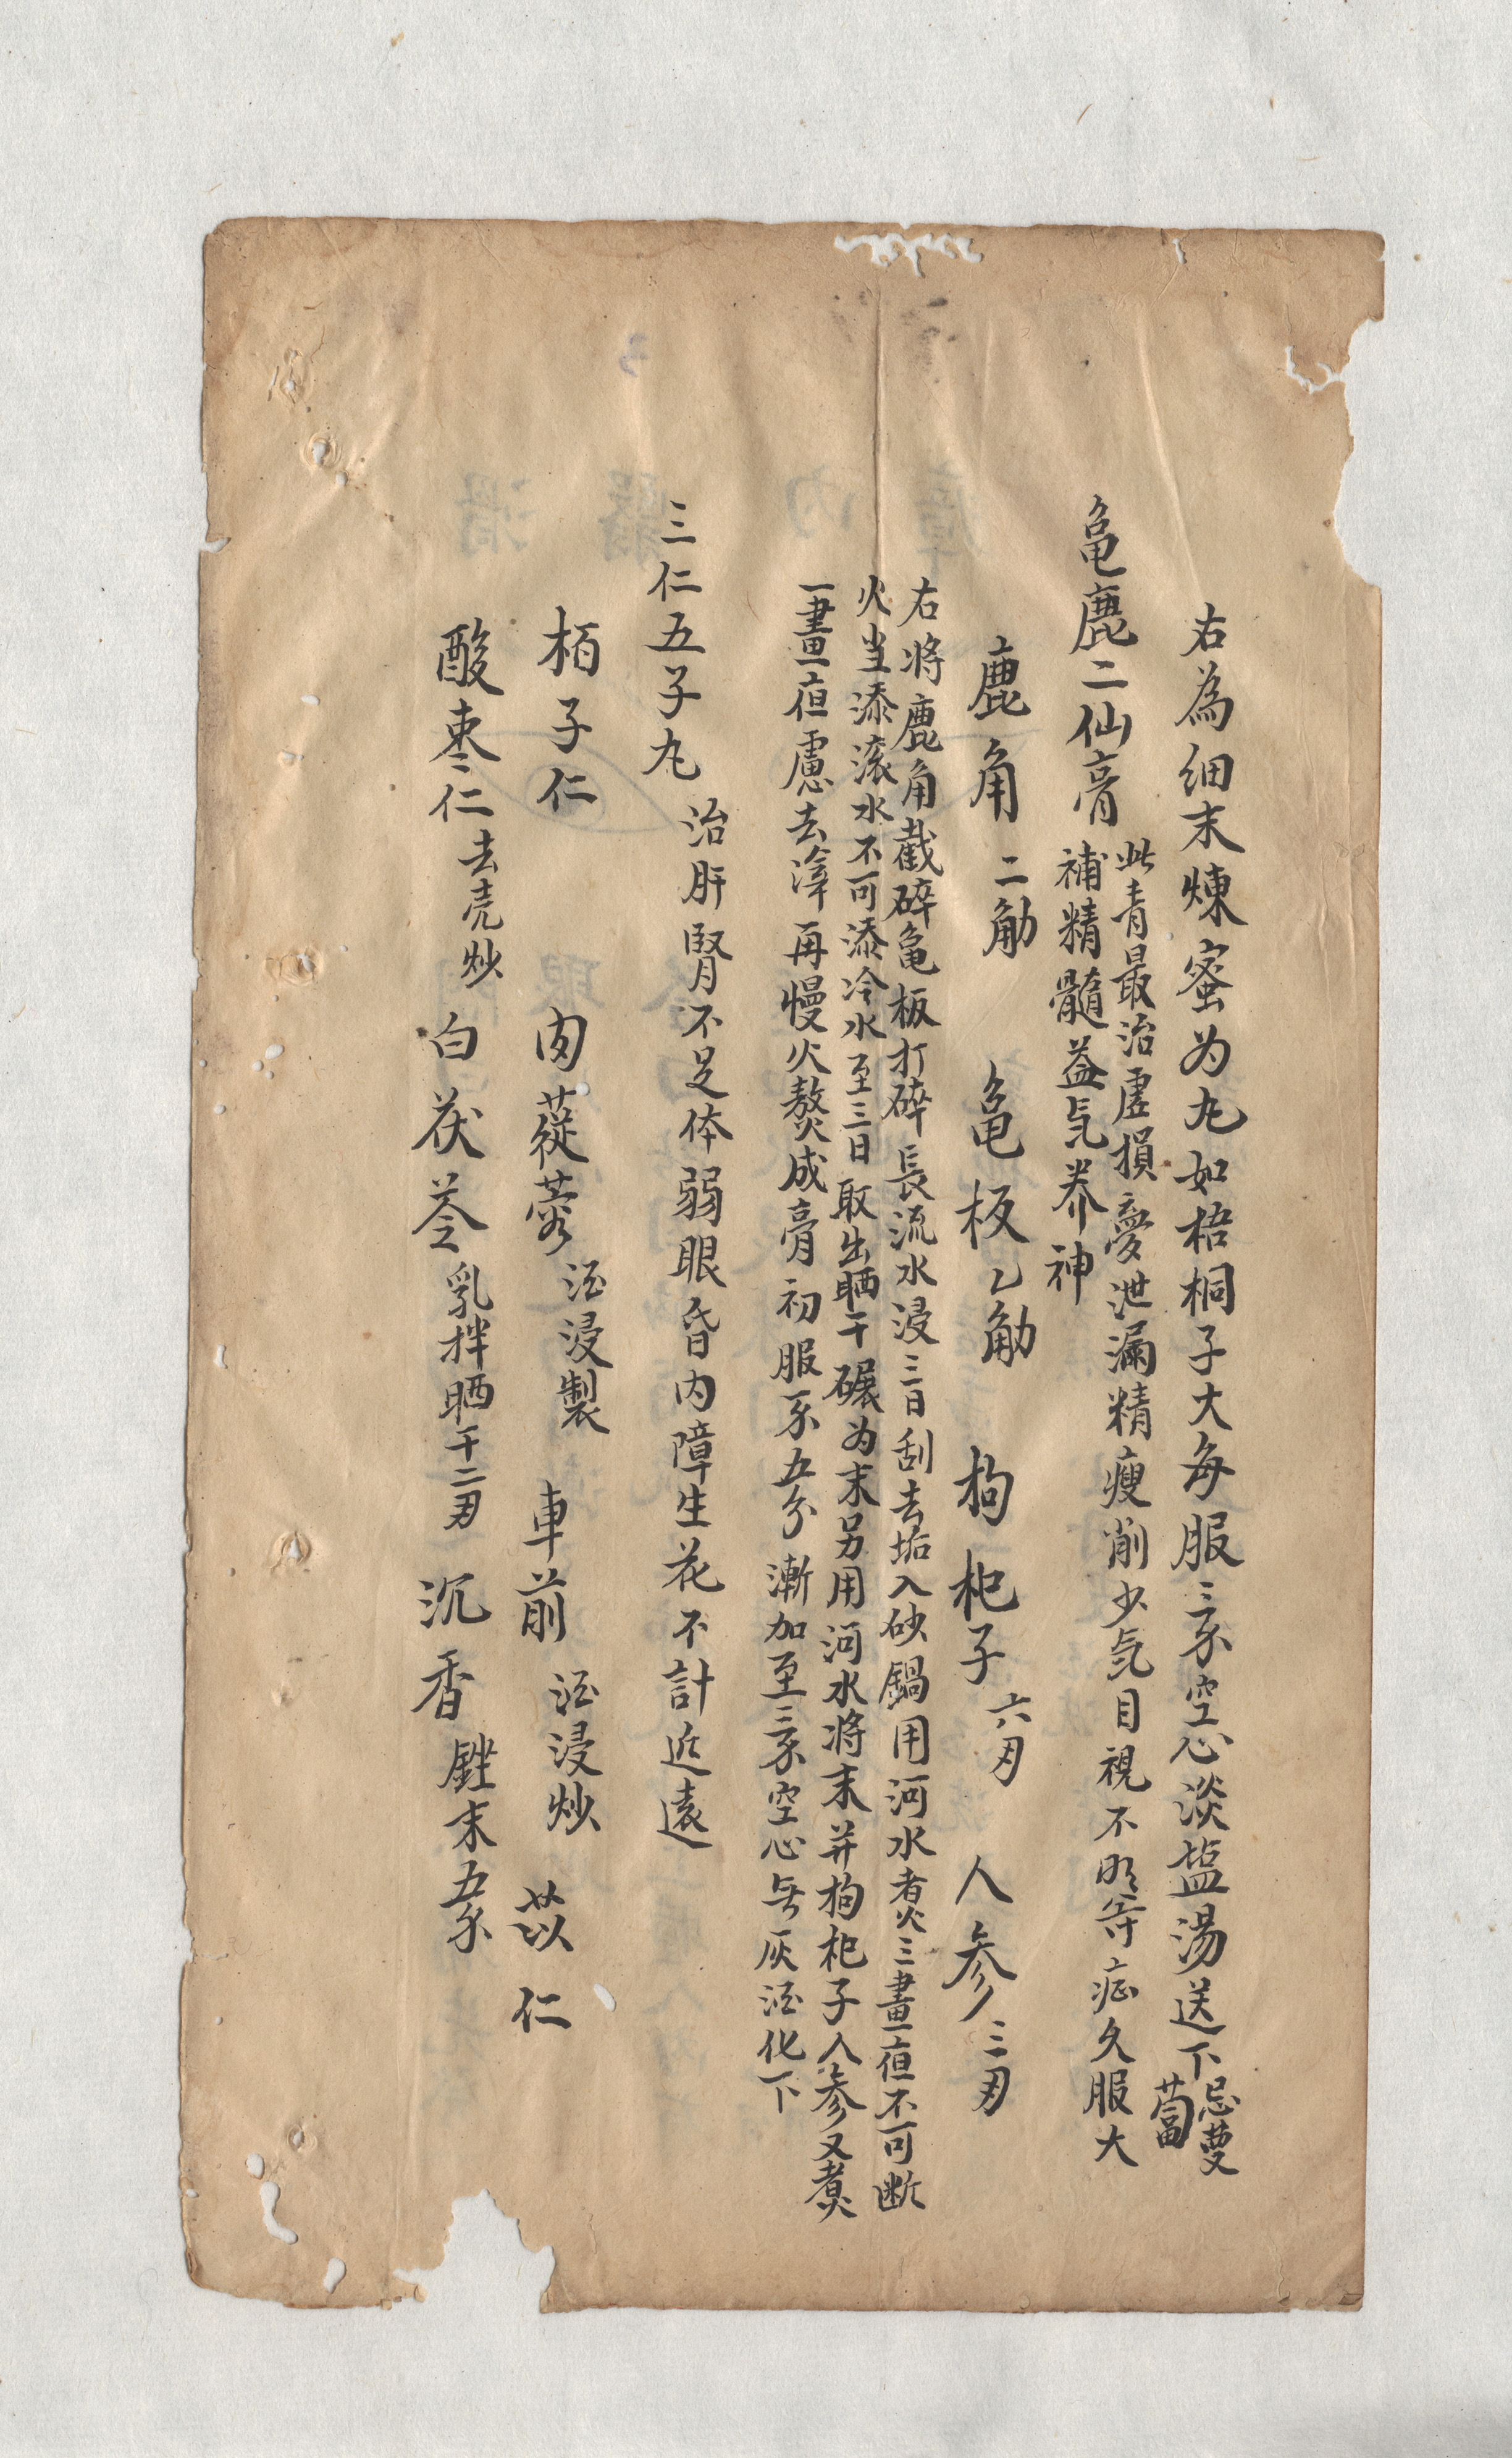 右為细末煉蜜为丸如梧桐子大每服三䊹空心淡塩湯送下忌蔓蔔
龟鹿二仙膏
此膏最治虚損夢泄漏精瘦削少気目視不明等症久服大
補精髓益気养神
鹿角二觔 龟板乙觔 枸杞子六刄 人参三刄
右将鹿角截碎龟板打碎長流水浸三日刮去垢入砂鍋用河水煮三晝夜不可断
火当添滚水不可添冷水至三日取出晒干碾为末另用河水将末并枸杞子人参又煮
一晝夜慮去滓再慢火熬成膏初服䊹五分漸加至三䊹空心無灰酒化下
三仁五子丸 治肝腎不足体弱眼昏内障生花不計近遠
栢子仁 肉蓯蓉酒浸製 車前酒浸炒 苡仁
酸棗仁去壳炒 白茯苓乳拌晒干二刄 沉香銼末五䊹